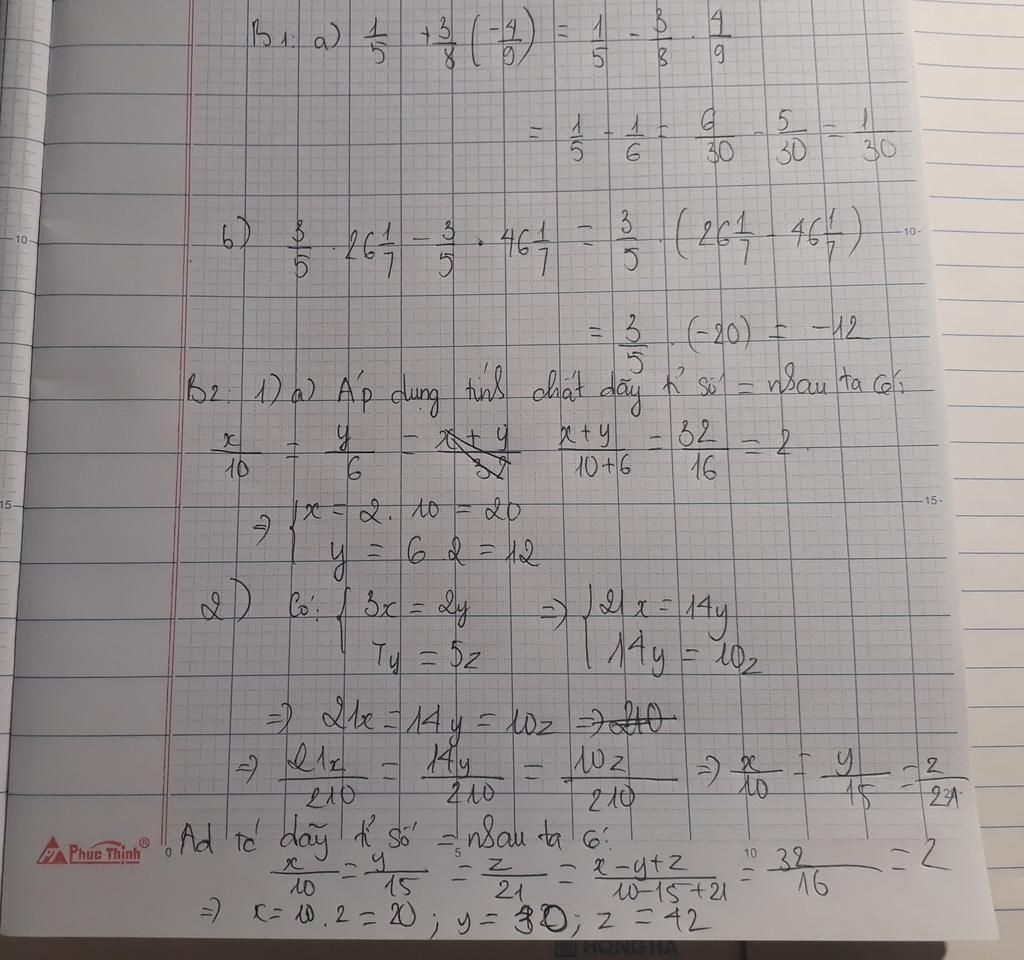 B1: a) 1/5 + 3/8 (-4/9) = 1/5 - 3/8 . 4/9
= 1/5 - 1/6 = 6/30 - 5/30 = 1/30
b) 3/5 . 26 1/7 - 3/5 . 46 1/7 = 3/5 . (26 1/7 - 46 1/7)
= 3/5 . (-20) = -12
B2: 1) a) Áp dụng tính chất dãy tỉ số = nhau ta có:
x/10 = y/6 = x+y/32 x+y/10+6 = 32/16 = 2
=> { x = 2 . 10 = 20
y = 6 2 = 12
2) Có: { 3x = 2y => { 21x = 14y
7y = 5z 14y = 10z
=> 21x = 14y = 10z => 210
=> 21x/210 = 14y/210 = 10z/210 => x/10 = y/15 = z/21
Ad t/c dãy tỉ số = nhau ta có:
x/10 = y/15 = z/21 = x-y+z/10-15+21 = 32/16 = 2
=> x = 10 . 2 = 20 ; y = 30 ; z = 42
10
10
15
15
Phuc Thinh®
0
5
10
HONG HA